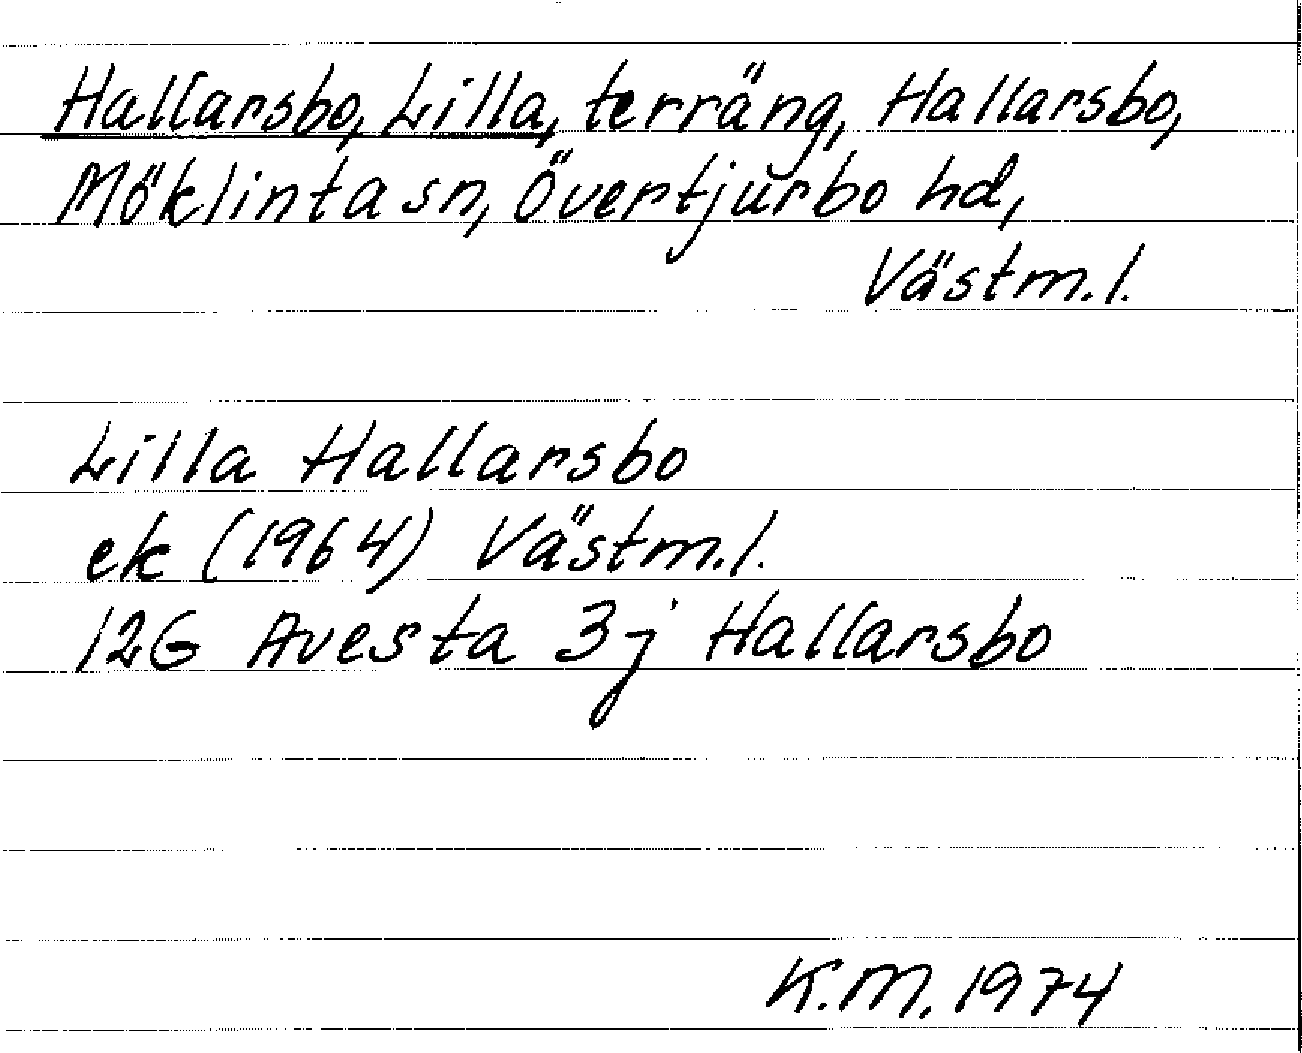 Hallarsbo, Lilla, terräng, Hallarsbo,
Möklinta sn, Övertjurbo hd,
Västm.l.
Lilla Hallarsbo
ek (1964) Västm.l.
12G Avesta 3j Hallarsbo
K.M. 1974